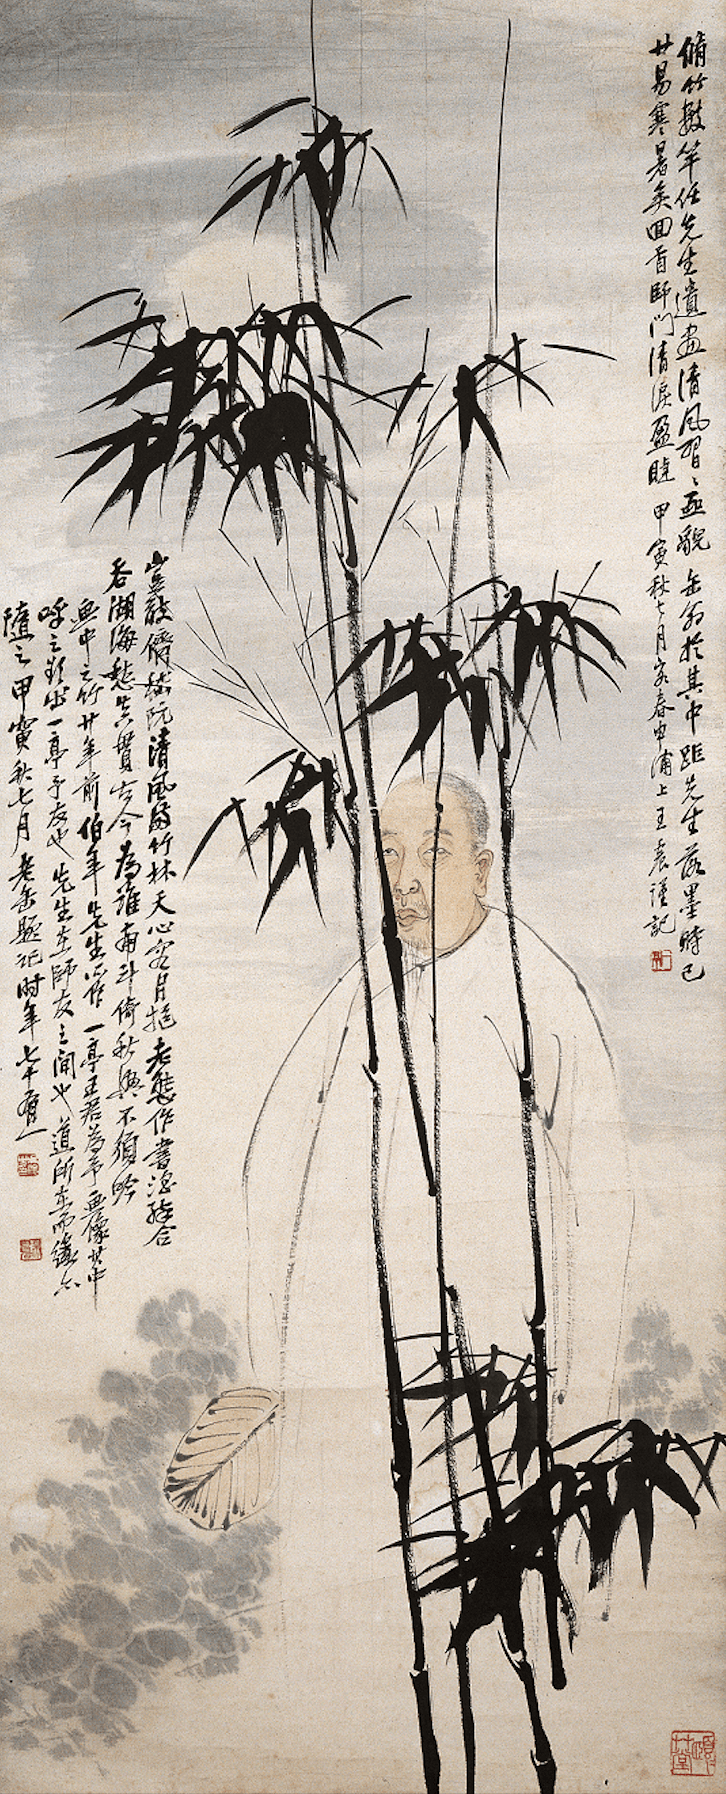 脩竹數竿任先生遺畫清風習〻亟貌缶翁於其中距先生落墨時已
廿易寒暑矣回首師門清淚盈睫 甲寅秋七月客春申浦上王震謹記
豈敢儕嵇阮清風留竹林天心容月抱老態作書淫合
吞湖海愁真貫古今為誰南斗倚秋興不須吟
畫中之竹廿年前伯年先生所作一亭王君為予畫像其中
呼之欲出一亭予友也先生在師友之間也道所在而緣亦
隨之甲寅秋七月老缶題記時年七十有一